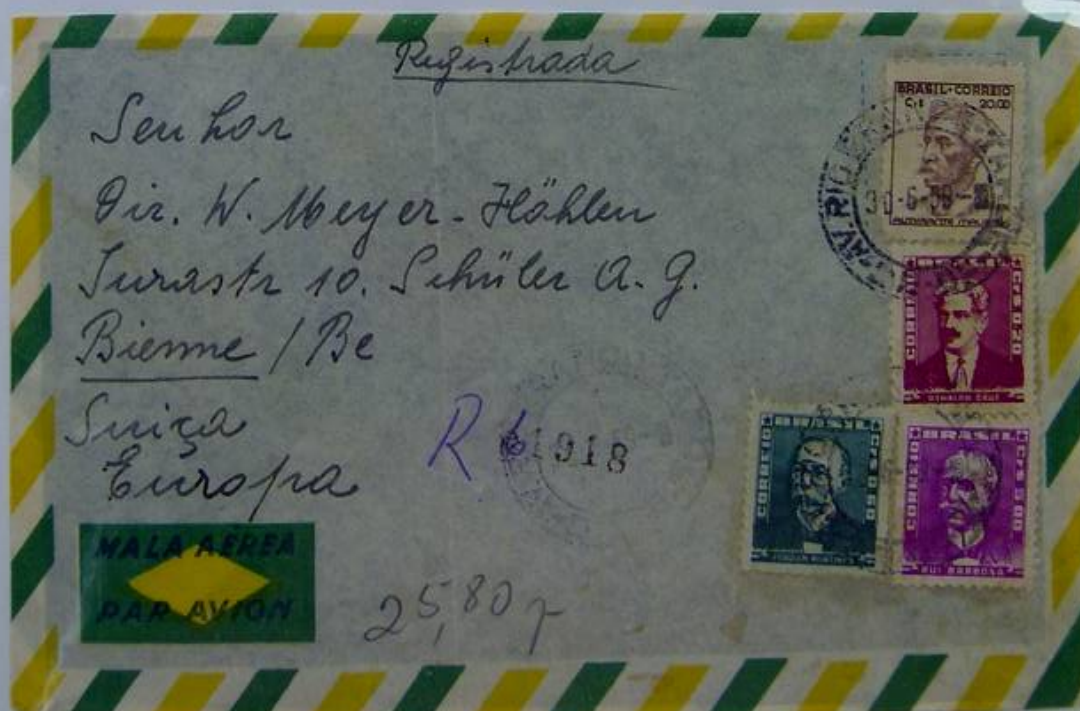 Registrada
Senhor
Dir. W. Meyer-Hählen
Jurastr 10. Schüler A. G.
Bienne / Be
Suiça
Europa
R 61918
25,80
MALA AEREA
PAR AVION
BRASIL-CORREIO
Cr$ 20.00
RIO
30-6-59
BRASIL
CORREIO
Cr$ 0.20
OSWALDO CRUZ
BRASIL
CORREIO
Cr$ 0.60
JOAQUIM MURTINHO
BRASIL
CORREIO
Cr$ 5.00
RUI BARBOSA